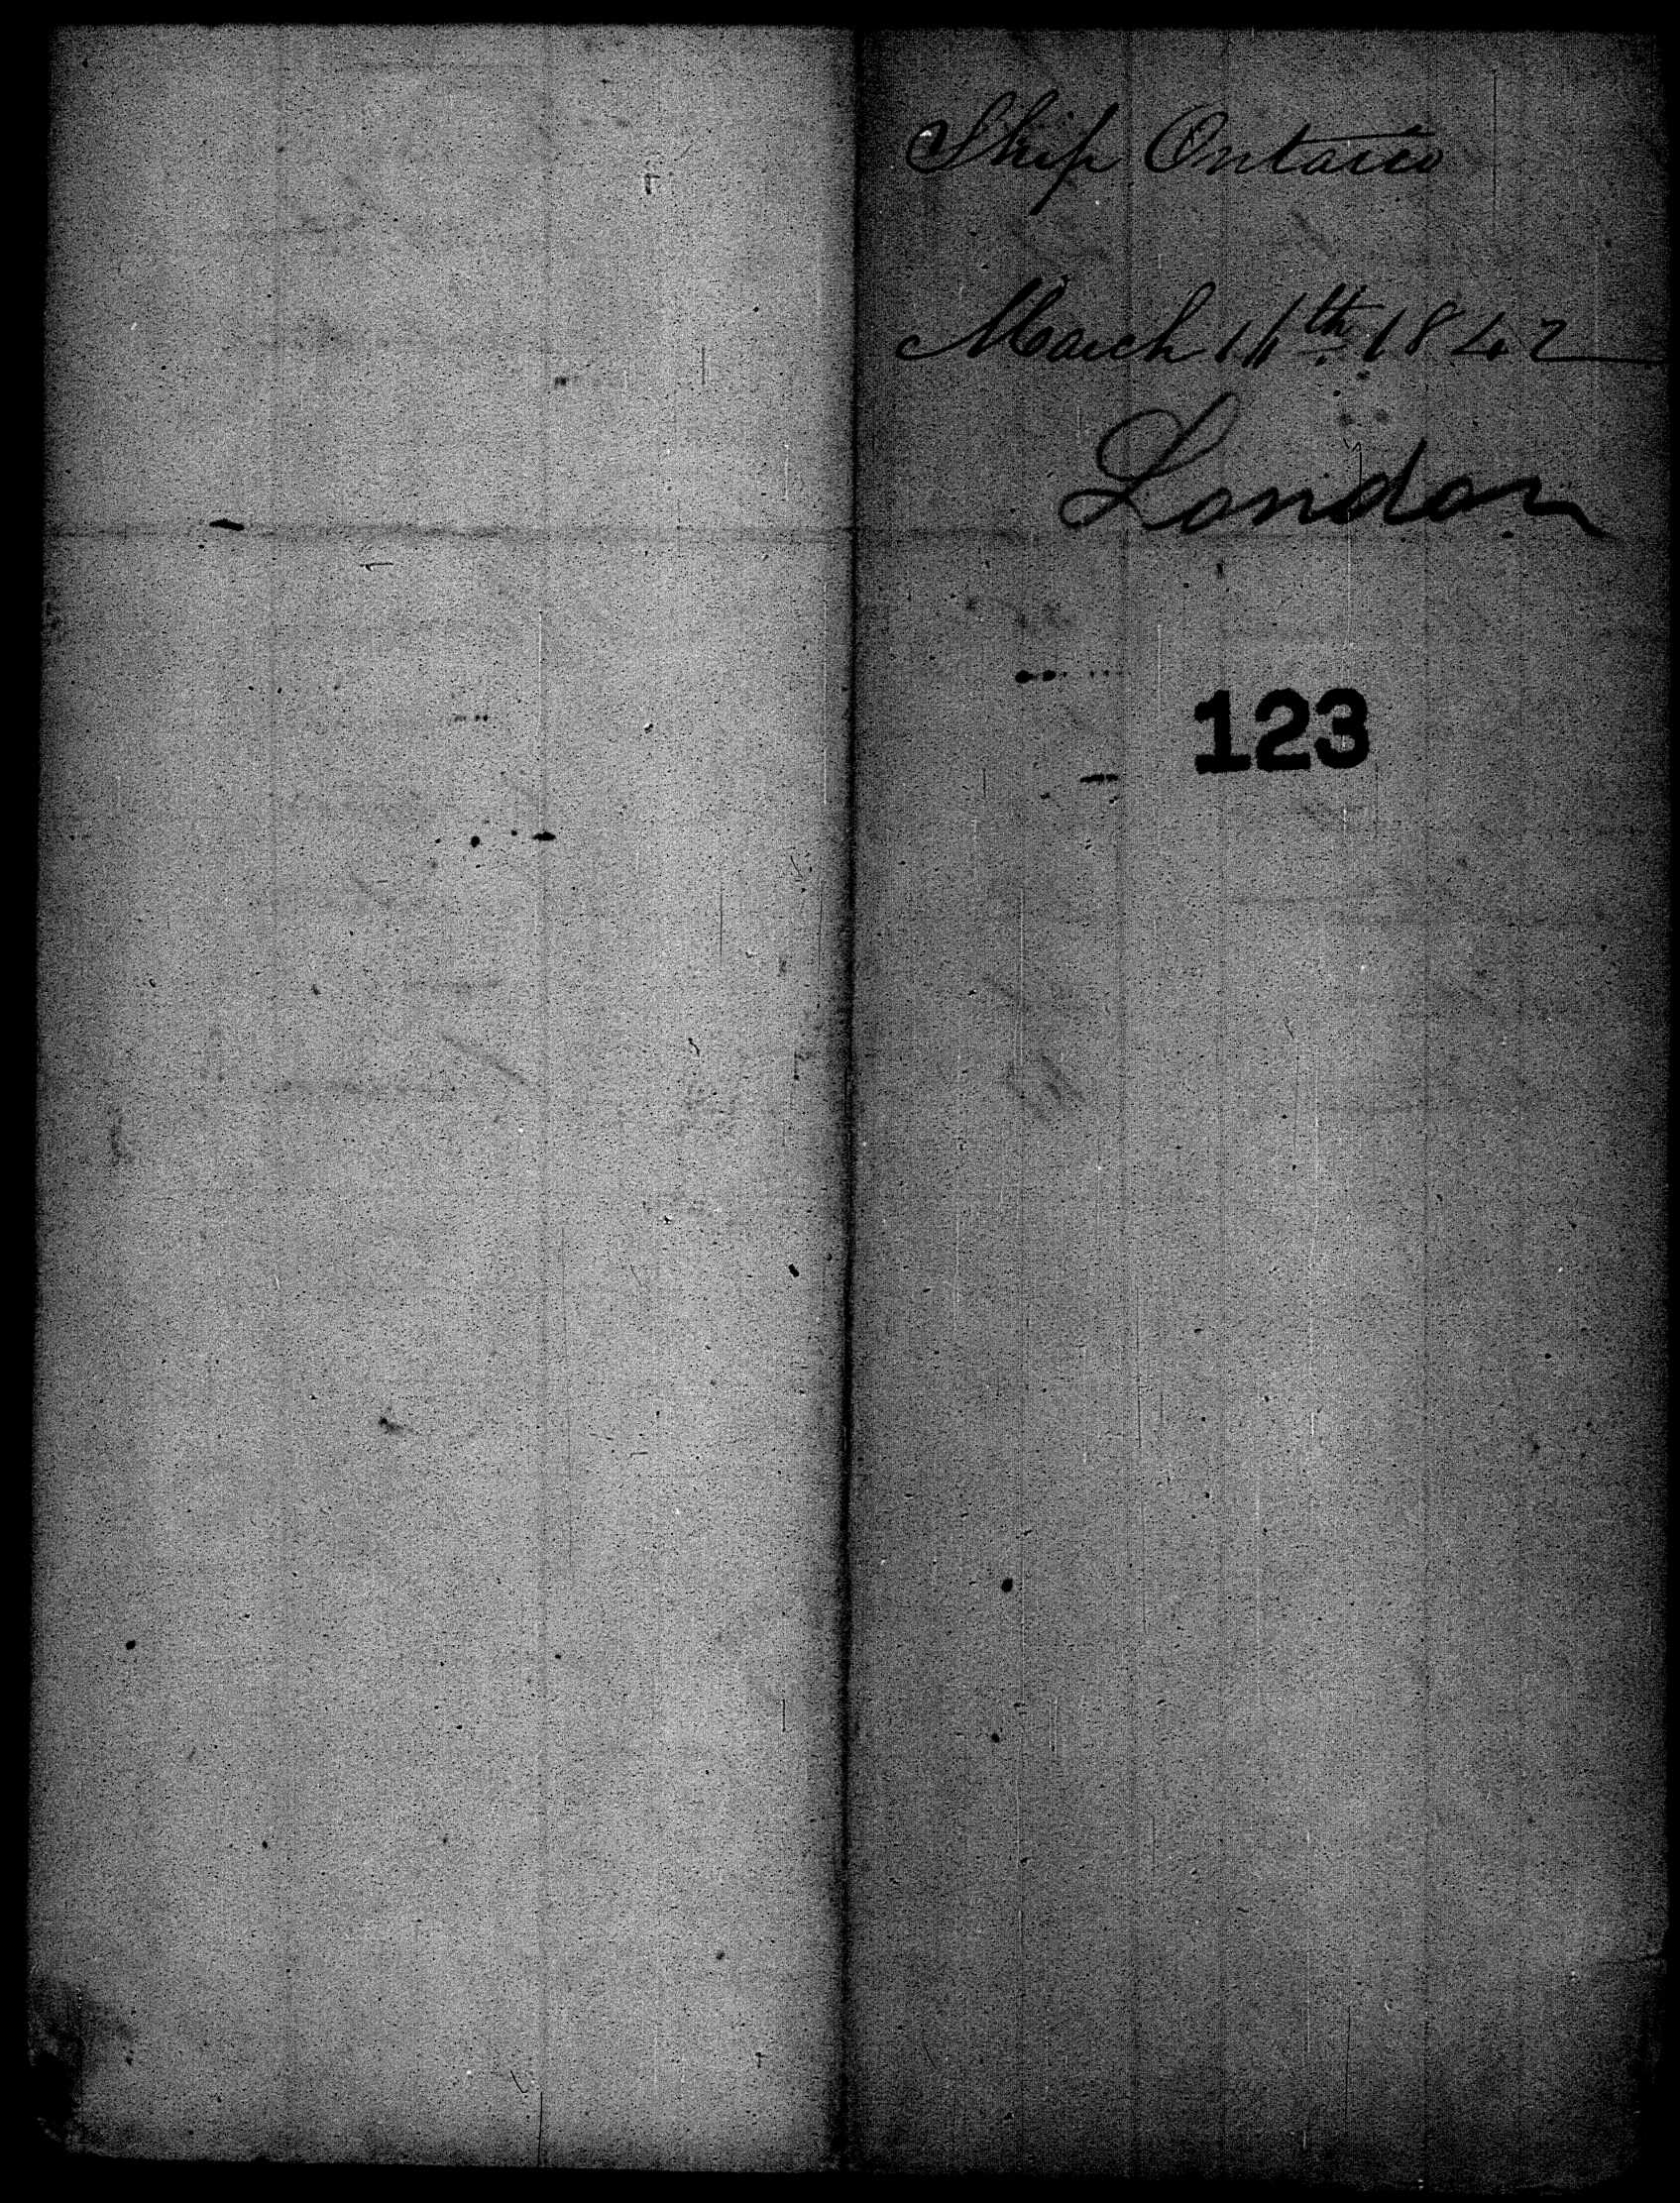 Ship Ontario
March 11th 1842
London
123